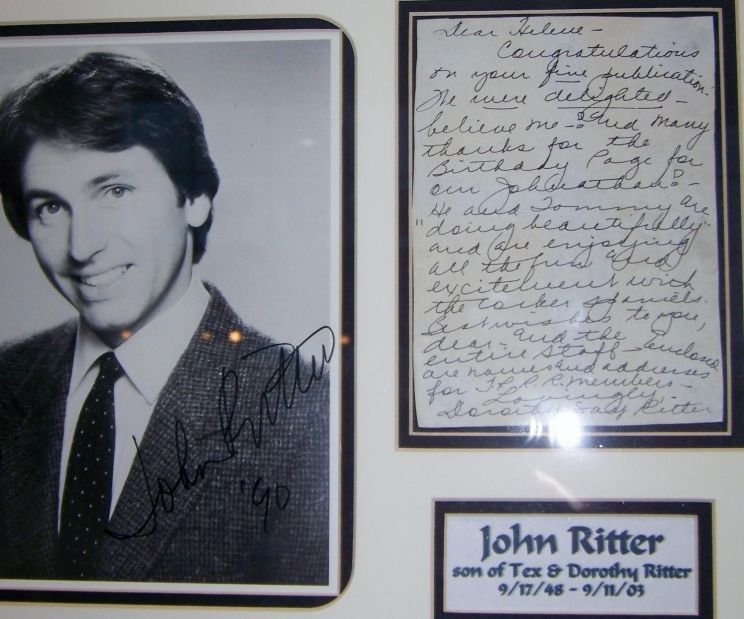 John Ritter
'90
Dear Helene -
Congratulations
on your fine publication.
We were delighted -
believe me - and many
thanks for the
Birthday Page for
our Johnathan -
He and Tommy are
"doing beautifully"
and are enjoying
all the fun and
excitement with
the cocker spaniels.
Best wishes to you,
dear - and the
entire staff - enclosed
are names and addresses
for T.R. members -
Lovingly,
Dorothy Fay Ritter
John Ritter
son of Tex & Dorothy Ritter
9/17/48 - 9/11/03